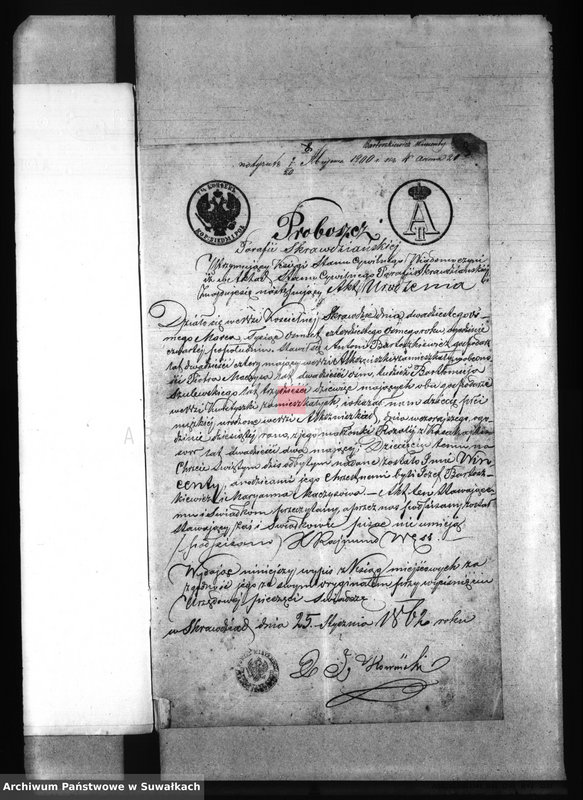 Bartoszkiewicz Wincenty
1900 r. № 4
7½ KOPIEJEK
Proboszcz
Parafii Skrawdziańskiéj
Utrzymujący Księgi Stanu Cywilnego Wiadomo czyni
iż w Aktach Stanu Cywilnego Parafii Skrawdziańskiéj
znajduje się następujący Akt Urodzenia
Działo się we wsi Kościelnéj Skrawdzie dnia dwudziestego ós-
mego Marca Tysiąc ośmset czterdziestego ósmego roku, o godzinie
czwartéj popołudniu. Stawił się Antoni Bartoszkiewicz gospodarz
lat dwadzieścia cztery mający we wsi zamieszkały, w obecno-
ści Piotra lat dwadzieścia ośm, tudzież Bartłomieja
Szulewskiego lat trzydzieści dziewięć mających, obu gospodarzy
we wsi zamieszkałych, i okazał nam dziecię płci
męzkiéj urodzone we wsi dnia wczorajszego o go-
dzinie dziesiątéj rano, z jego małżonki Rozalji z
lat dwadzieścia dwa mającéj. Dziecięciu temu na
Chrzcie Świętym dziś odbytym nadane zostało Imie Win-
centy, a rodzicami jego chrzestnemi byli Józef Bartosz-
kiewicz i Maryanna Akt ten stawające-
mu i Świadkom przeczytany, a przez nas podpisany został
Stawający zaś i Świadkowie pisać nie umieją
(podpisano) X Rajmund Węss
Wydając niniejszy wypis z Ksiąg miejscowych za
zgodność jego ze swym oryginałem przy wyciśnięciu
Urzędowéj pieczęci świadczę
w Skrawdziach dnia 25 Stycznia 1862 roku
Archiwum Państwowe w Suwałkach